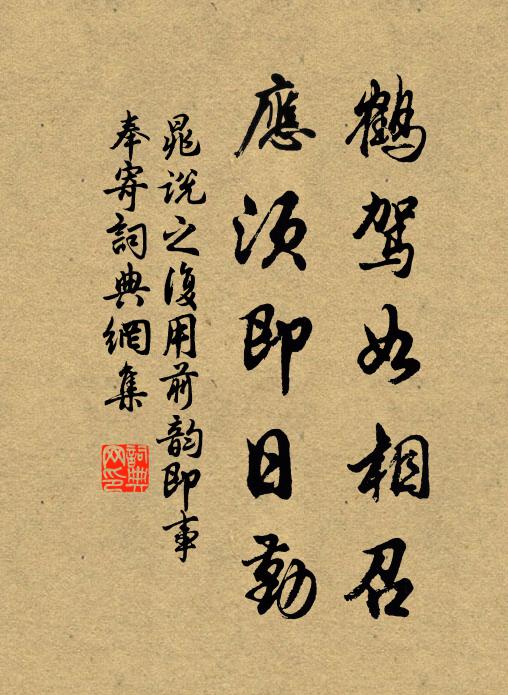 鶴駕如相召
應須即日勤
晁說之復用前韵即事
奉寄詞典網集
詞典
网印